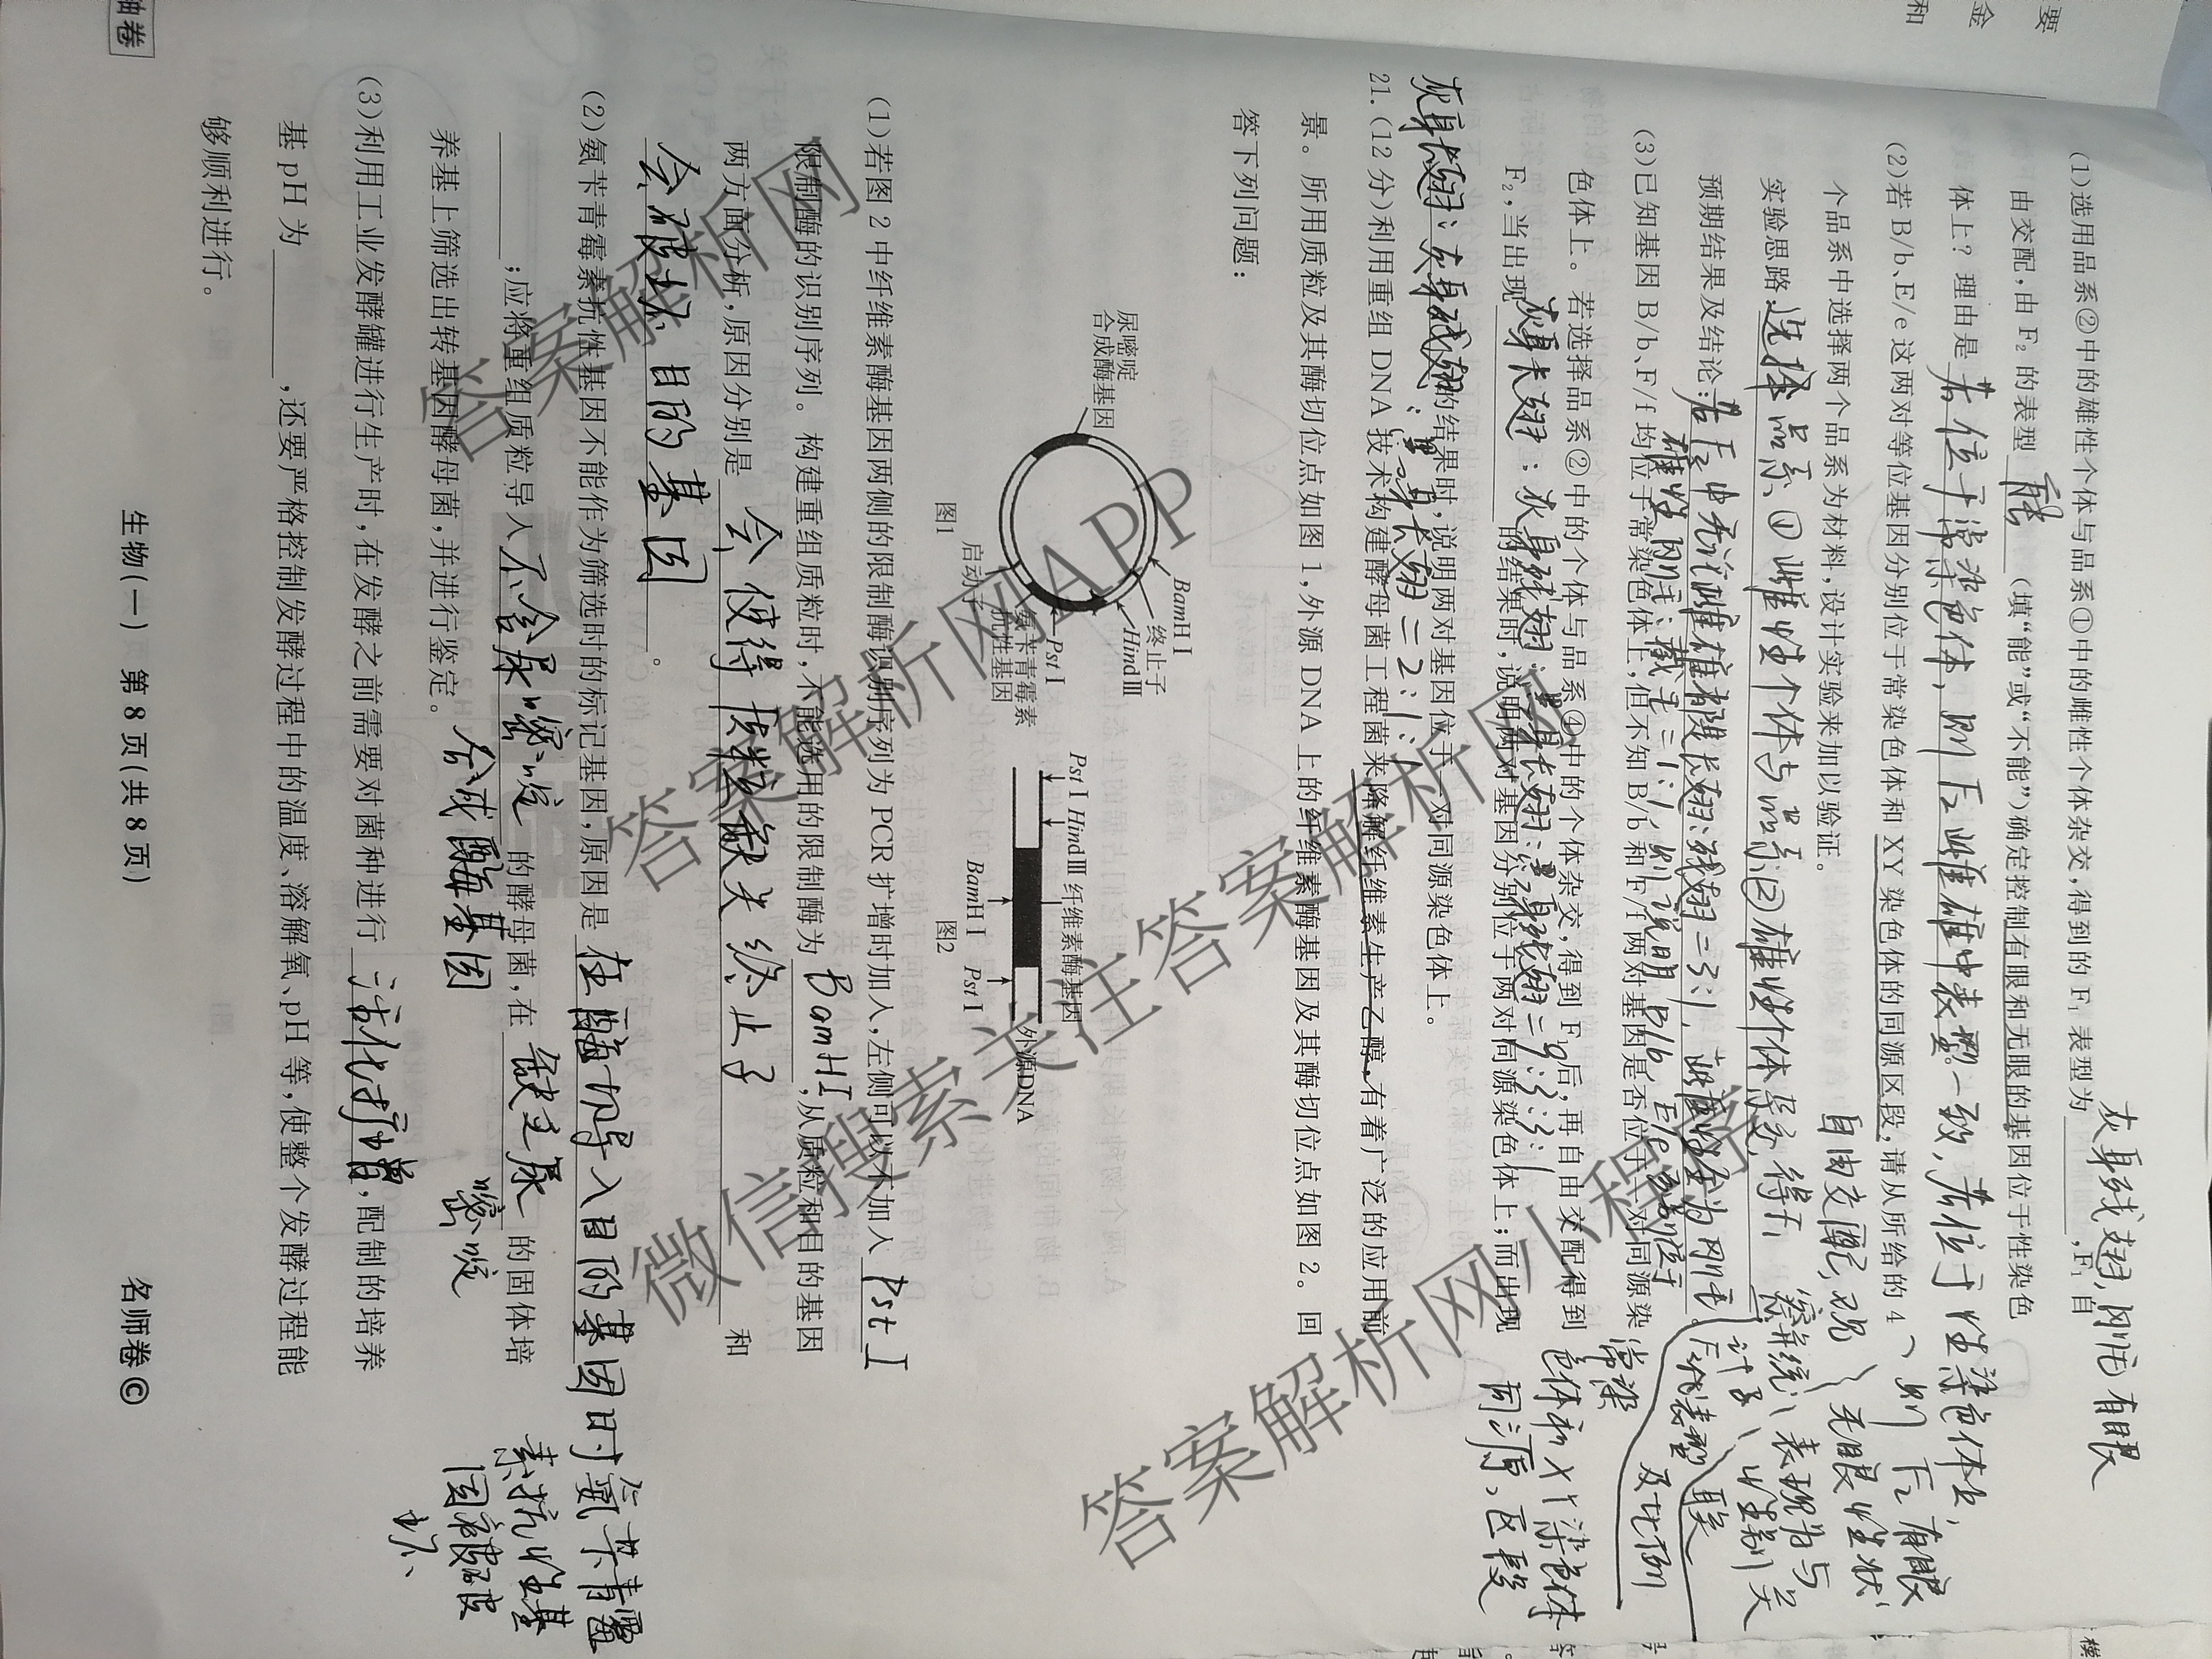 要
金
和
灰身残翅,刚毛有眼
(1)选用品系②中的雄性个体与品系①中的雌性个体杂交,得到的F₁表型为________,F₁自
由交配,由F₂的表型 能 (填“能”或“不能”)确定控制有眼和无眼的基因位于性染色
体上?理由是若位于常染色体,则F₂雌雄中表型一致,若位于性染色体上,
则F₂有眼
无眼性状
表现为与
性别关
联
(2)若B/b、E/e这两对等位基因分别位于常染色体和XY染色体的同源区段,请从所给的4
个品系中选择两个品系为材料,设计实验来加以验证。
自由交配,观
察并统
计子
后代表型
及比例
实验思路:选择品系①雌性个体与品系②雄性个体杂交,得F₁
预期结果及结论:若F₂中无论雌雄都是长翅:残翅=3:1,
雄性刚毛:截毛=1:1,则说明B/b,E/e位于
常染
色体和XY染色体
同源区段
(3)已知基因B/b、F/f均位于常染色体上,但不知B/b和F/f两对基因是否位于一对同源染
色体上。若选择品系②中的个体与品系④中的个体杂交,得到F₁后,再自由交配得到
F₂,当出现灰身长翅:灰身残翅:黑身长翅:黑身残翅=9:3:3:1的结果时,说明两对基因分别位于两对同源染色体上;而出现
灰身长翅:灰身残翅:黑身长翅=2:1:1的结果时,说明两对基因位于一对同源染色体上。
21.(12分)利用重组DNA技术构建酵母菌工程菌来降解纤维素生产乙醇,有着广泛的应用前
景。所用质粒及其酶切位点如图1,外源DNA上的纤维素酶基因及其酶切位点如图2。回
答下列问题:
尿嘧啶
合成酶基因
BamHⅠ
终止子
HindⅢ
PstⅠ
氨苄青霉素
抗性基因
启动子
图1
PstⅠ HindⅢ 纤维素酶基因
外源DNA
BamHⅠ PstⅠ
图2
(1)若图2中纤维素酶基因两侧的限制酶识别序列为PCR扩增时加入,左侧可以不加入 PstⅠ
限制酶的识别序列。构建重组质粒时,不能选用的限制酶为 BamHⅠ ,从质粒和目的基因
两方面分析,原因分别是 会使得质粒缺失终止子 和
会破坏目的基因 。
(2)氨苄青霉素抗性基因不能作为筛选时的标记基因,原因是 在酶切导入目的基因时氨苄青霉
素抗性基
因被破
坏
________;应将重组质粒导入 不含尿嘧啶 的酵母菌,在 缺乏尿 的固体培
合成酶基因
嘧啶
养基上筛选出转基因酵母菌,并进行鉴定。
(3)利用工业发酵罐进行生产时,在发酵之前需要对菌种进行 活化扩增 ,配制的培养
基pH为________,还要严格控制发酵过程中的温度、溶解氧、pH等,使整个发酵过程能
够顺利进行。
生物(一) 第8页(共8页)
名师卷©
答案解析网
答案解析网APP
微信搜索关注答案解析网
答案解析网小程序